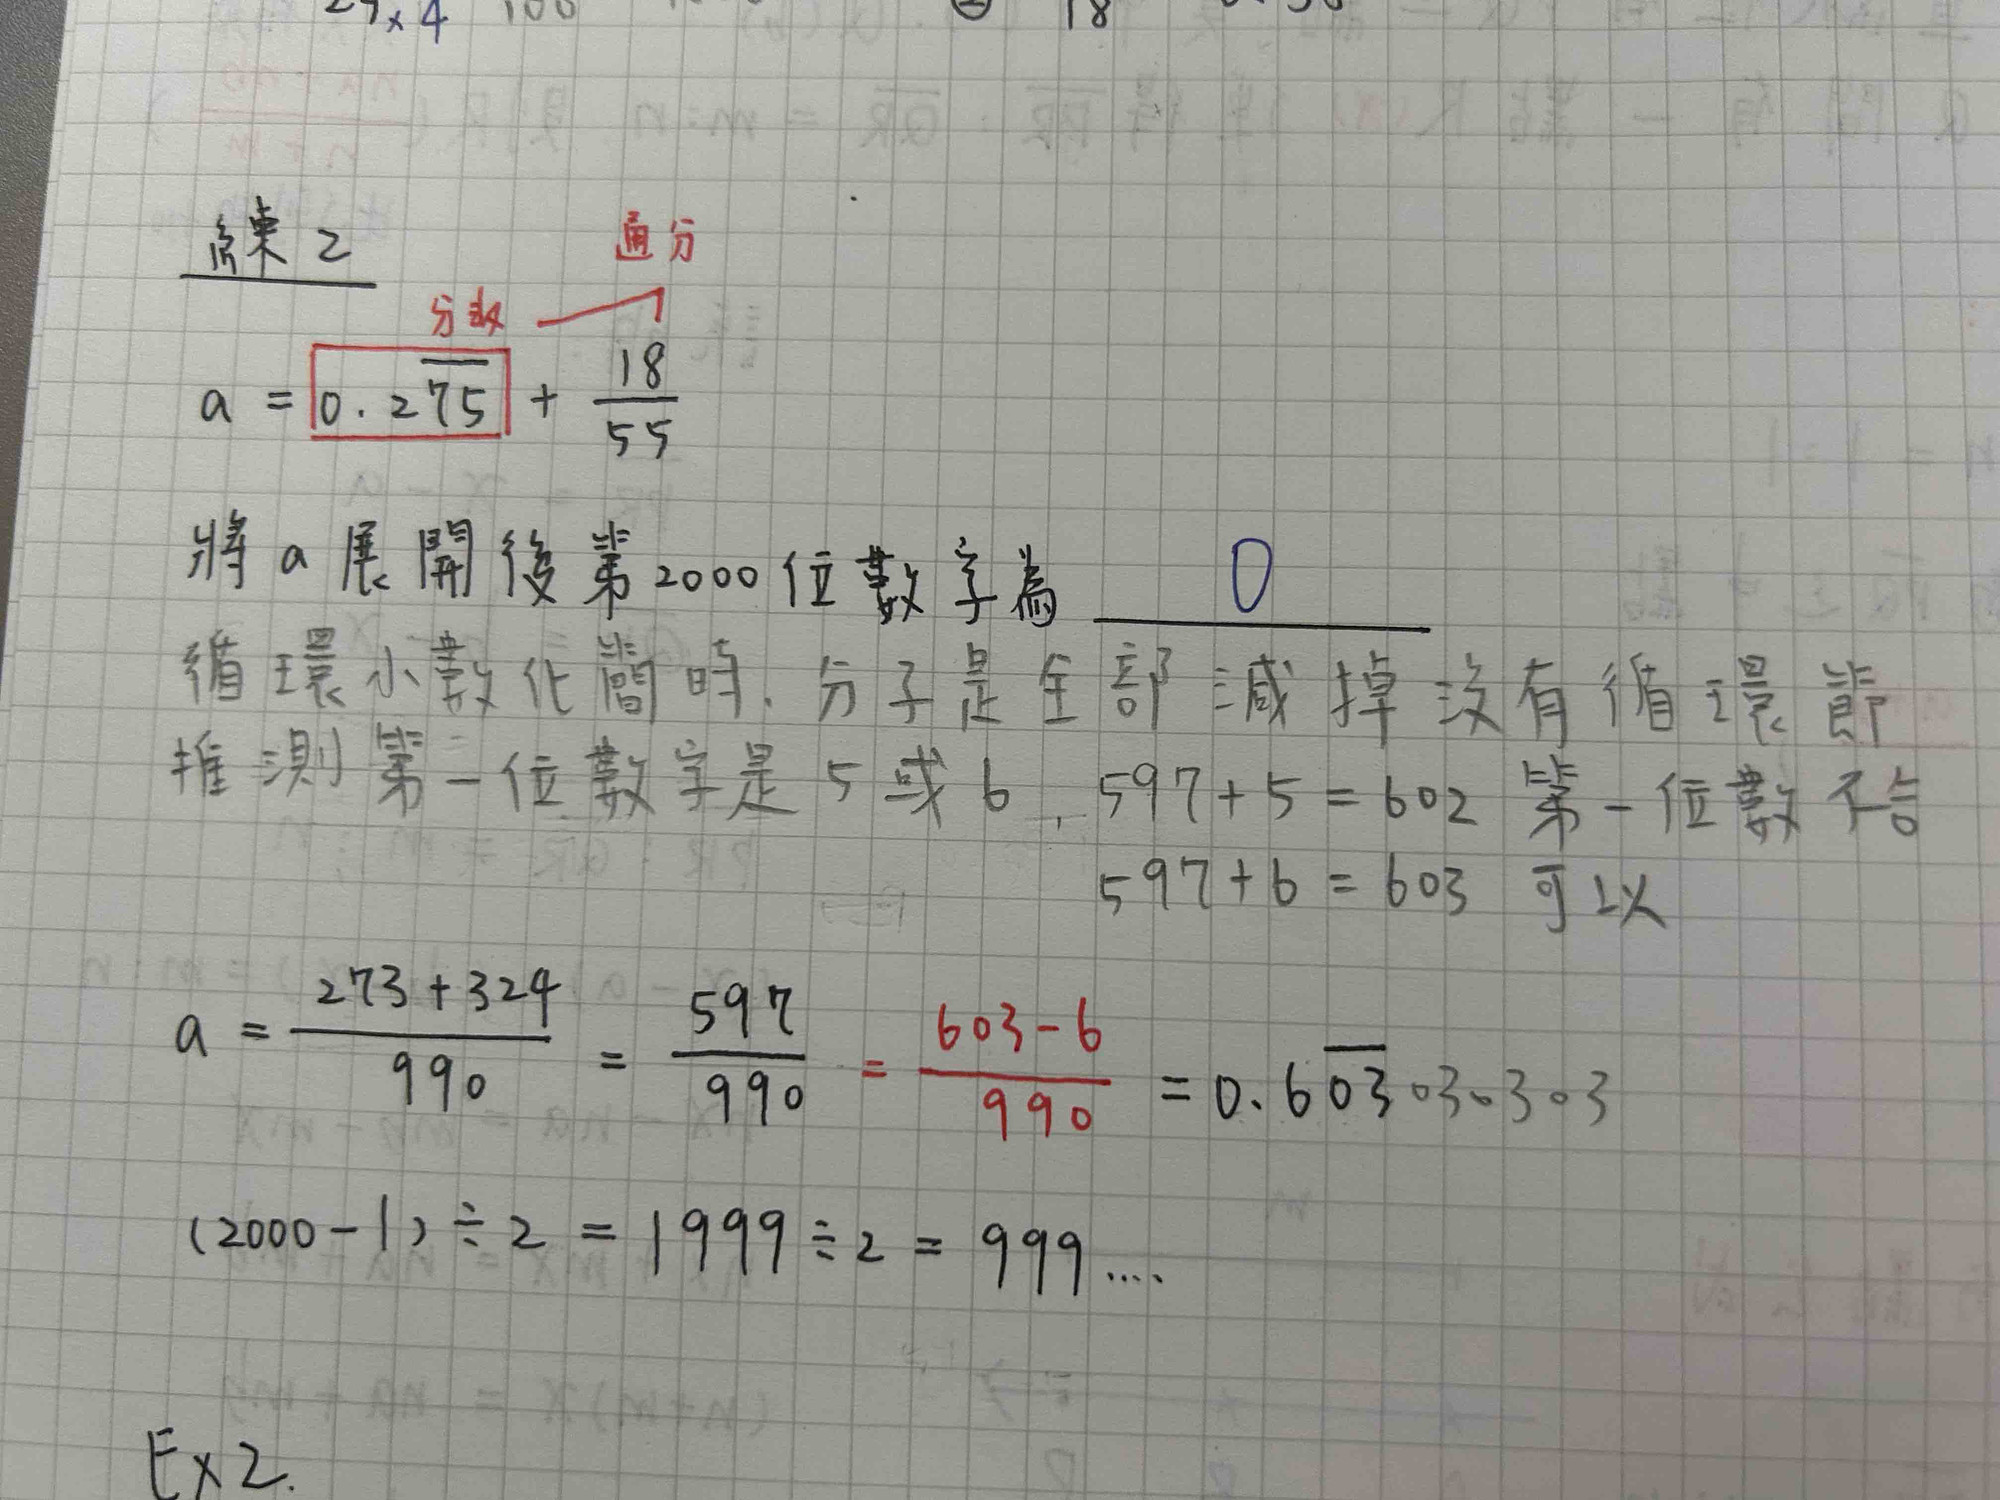 練 2
通分
分数
a = 0.2\overline{75} + \frac{18}{55}
將 a 展開後第2000位數字為 0
循環小數化簡時，分子是全部減掉沒有循環節
推測第一位數字是 5 或 6，597+5=602 第一位數不合
597+6=603 可以
a = \frac{273+324}{990} = \frac{597}{990} = \frac{603-6}{990} = 0.6\overline{03}030303
(2000-1)÷2 = 1999÷2 = 999....
Ex2.